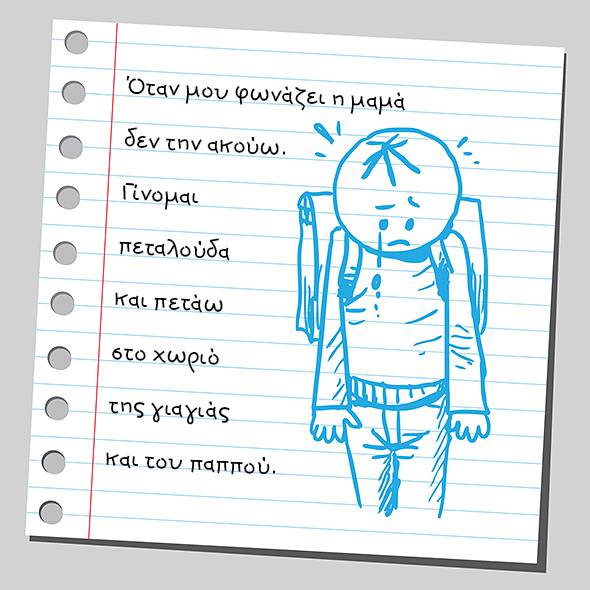 Όταν μου φωνάζει η μαμά
δεν την ακούω.
Γίνομαι
πεταλούδα
και πετάω
στο χωριό
της γιαγιάς
και του παππού.